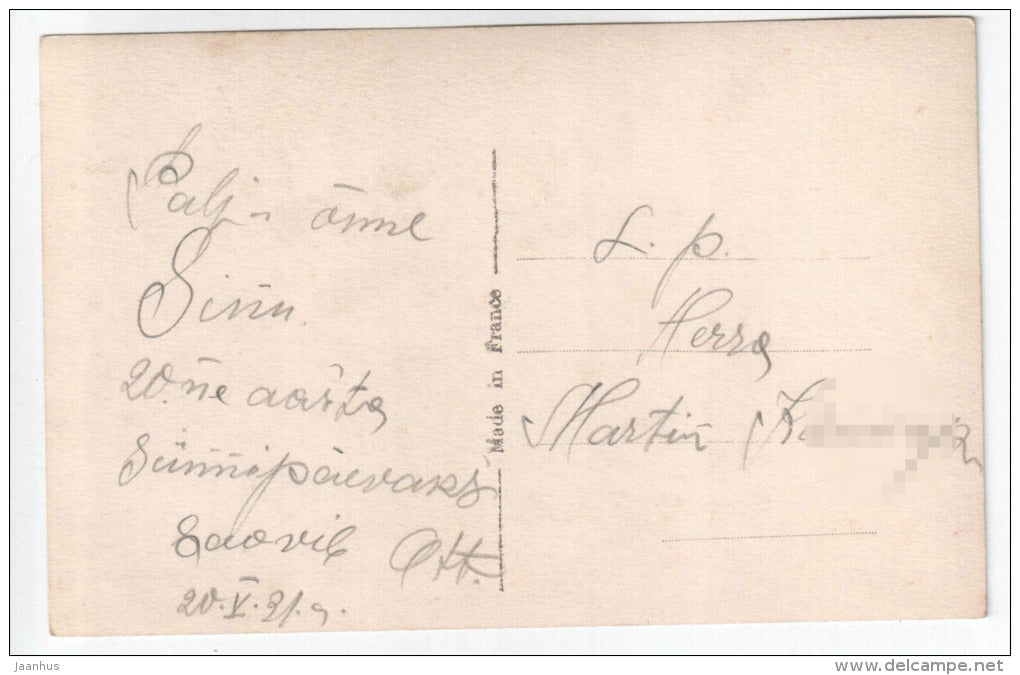 Palju õnne
Sinu
20.ne aasta
Sünnipäevaks
Soovib Ott.
20.V.31.a.
Made in France
L. p.
Herra
Martin
Jaanhus
www.delcampe.net